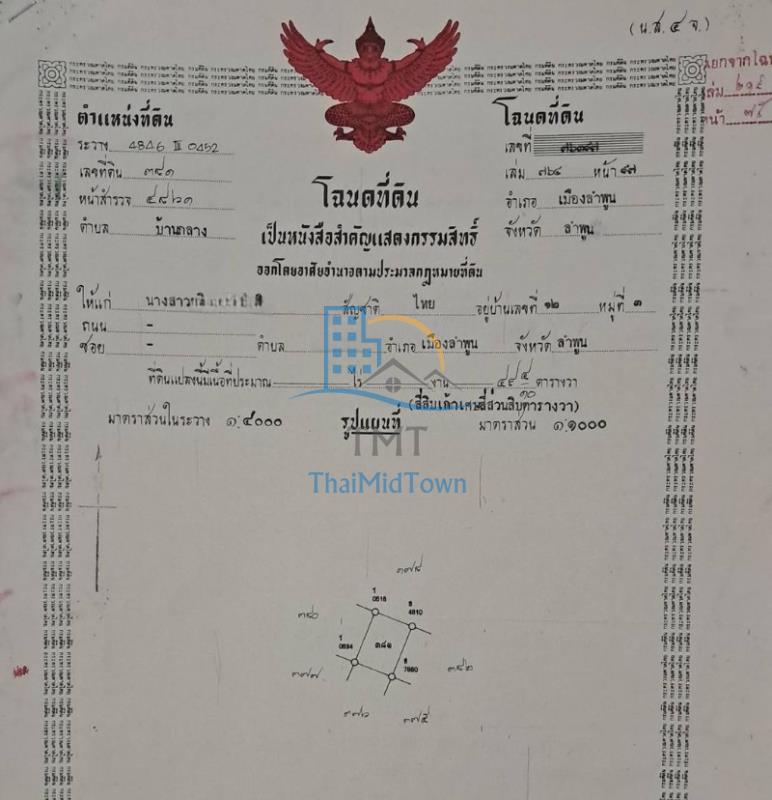 (น.ส.๔ จ.)
ตำแหน่งที่ดิน
ระวาง 4846 III 0452
เลขที่ดิน ๓๘๑
หน้าสำรวจ ๔๙๖๑
ตำบล บ้านกลาง
โฉนดที่ดิน
เลขที่
เล่ม ๗๖๔ หน้า ๘๗
อำเภอ เมืองลำพูน
จังหวัด ลำพูน
โฉนดที่ดิน
เป็นหนังสือสำคัญแสดงกรรมสิทธิ์
ออกโดยอาศัยอำนาจตามประมวลกฎหมายที่ดิน
ให้แก่ นางสาว สัญชาติ ไทย อยู่บ้านเลขที่ ๑๒ หมู่ที่ ๓
ถนน -
ซอย - ตำบล อำเภอ เมืองลำพูน จังหวัด ลำพูน
ที่ดินแปลงนี้มีเนื้อที่ประมาณ ไร่ งาน ๔๙ ๔/๑๐ ตารางวา
(สี่สิบเก้าเศษสี่ส่วนสิบตารางวา)
มาตราส่วนในระวาง ๑:๔๐๐๐ รูปแผนที่ มาตราส่วน ๑:๑๐๐๐
TMT
ThaiMidTown
๓๗๘
0516
4810
๓๘๐
๓๘๑
0694
7960
๓๗๗
๓๘๒
๓๗๖
๓๗๕